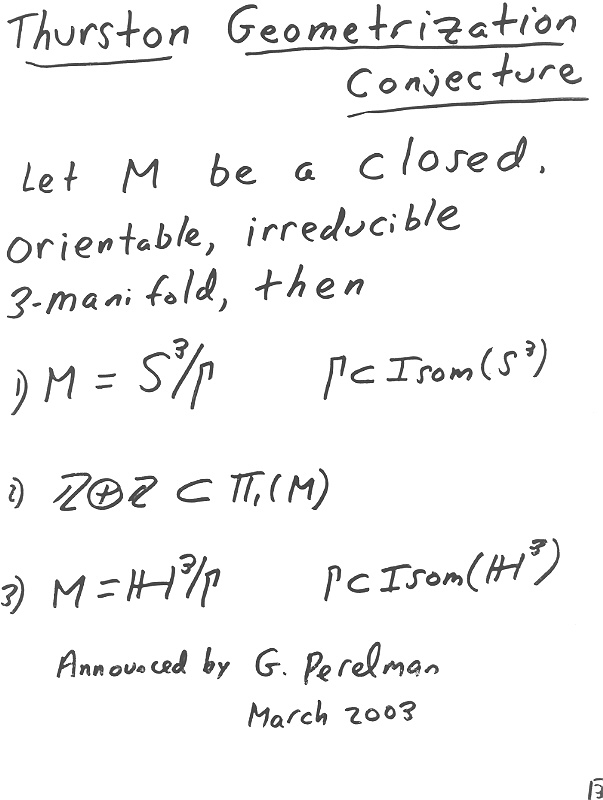 Thurston Geometrization
Conjecture
Let M be a closed,
orientable, irreducible
3-manifold, then
1) M = S³/Γ Γ⊂Isom(S³)
2) ℤ⊕ℤ ⊂ π₁(M)
3) M = ℍ³/Γ Γ⊂Isom(ℍ³)
Annouced by G. Perelman
March 2003
13